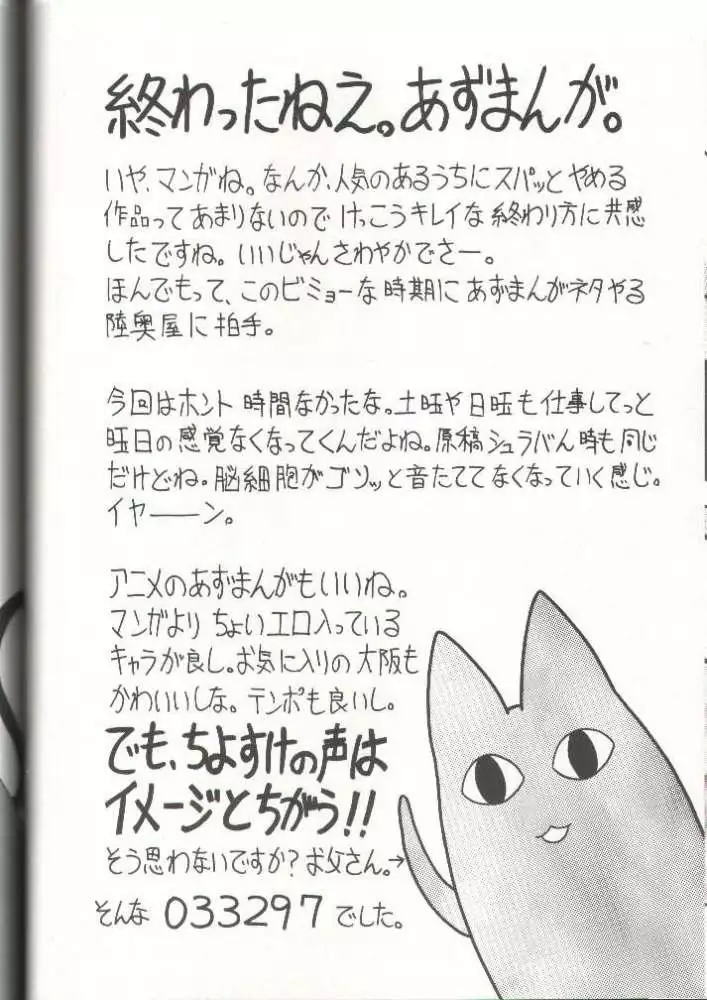 終わったねえ。あずまんが。
いや、マンガね。なんか、人気のあるうちにスパッとやめる
作品ってあまりないので けっこうキレイな終わり方に共感
したですね。いいじゃんさわやかでさー。
ほんでもって、このビミョーな時期にあずまんがネタやる
陸奥屋に拍手。
今回はホント 時間なかったな。土旺や日旺も仕事してっと
曜日の感覚なくなってくんだよね。原稿シュラバん時も同じ
だけどね。脳細胞がゴソッと音たててなくなっていく感じ。
イヤーーン。
アニメのあずまんがもいいね。
マンガより ちょいエロ入っている
キャラが良し。お気に入りの大阪も
かわいいしな。テンポも良いし。
でも、ちよすけの声は
イメージとちがう!!
そう思わないですか?お父さん。→
そんな 033297 でした。